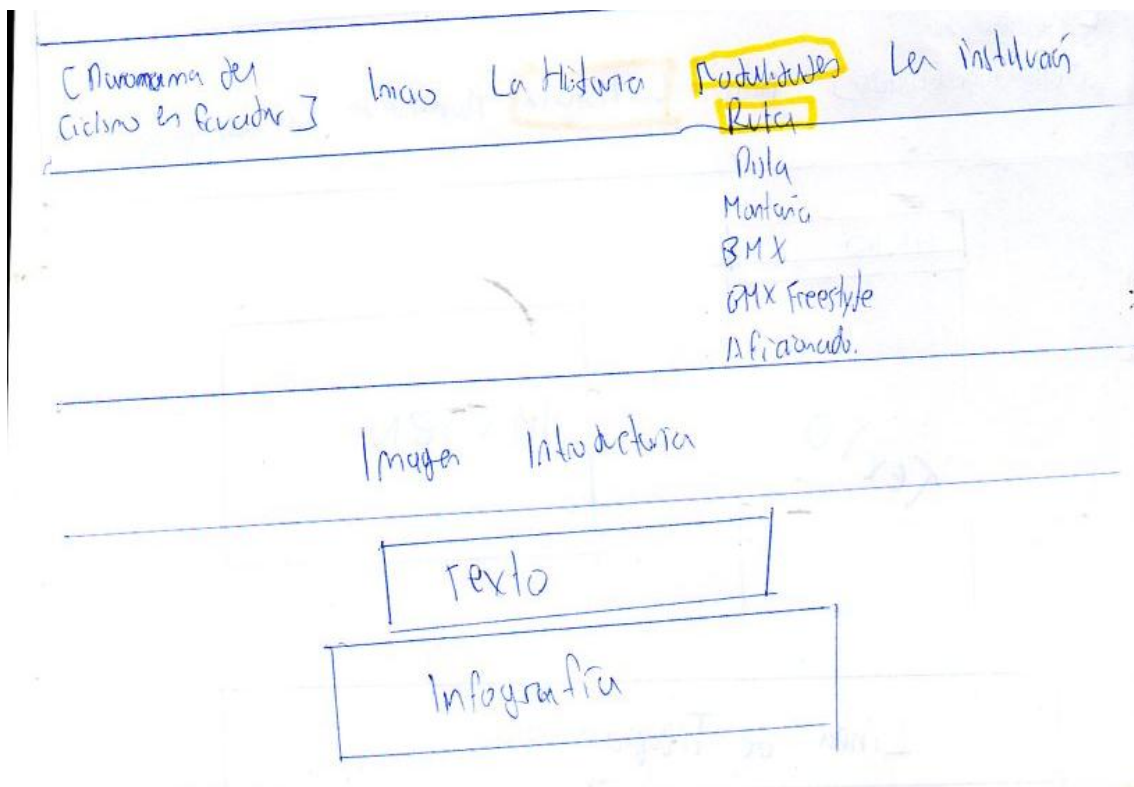 [Panorama del
Ciclismo en Ecuador]
Inicio
La Historia
Modalidades
La institución
Ruta
Pista
Montaña
BMX
BMX Freestyle
Aficionado.
Imagen Introductoria
Texto
Infografía